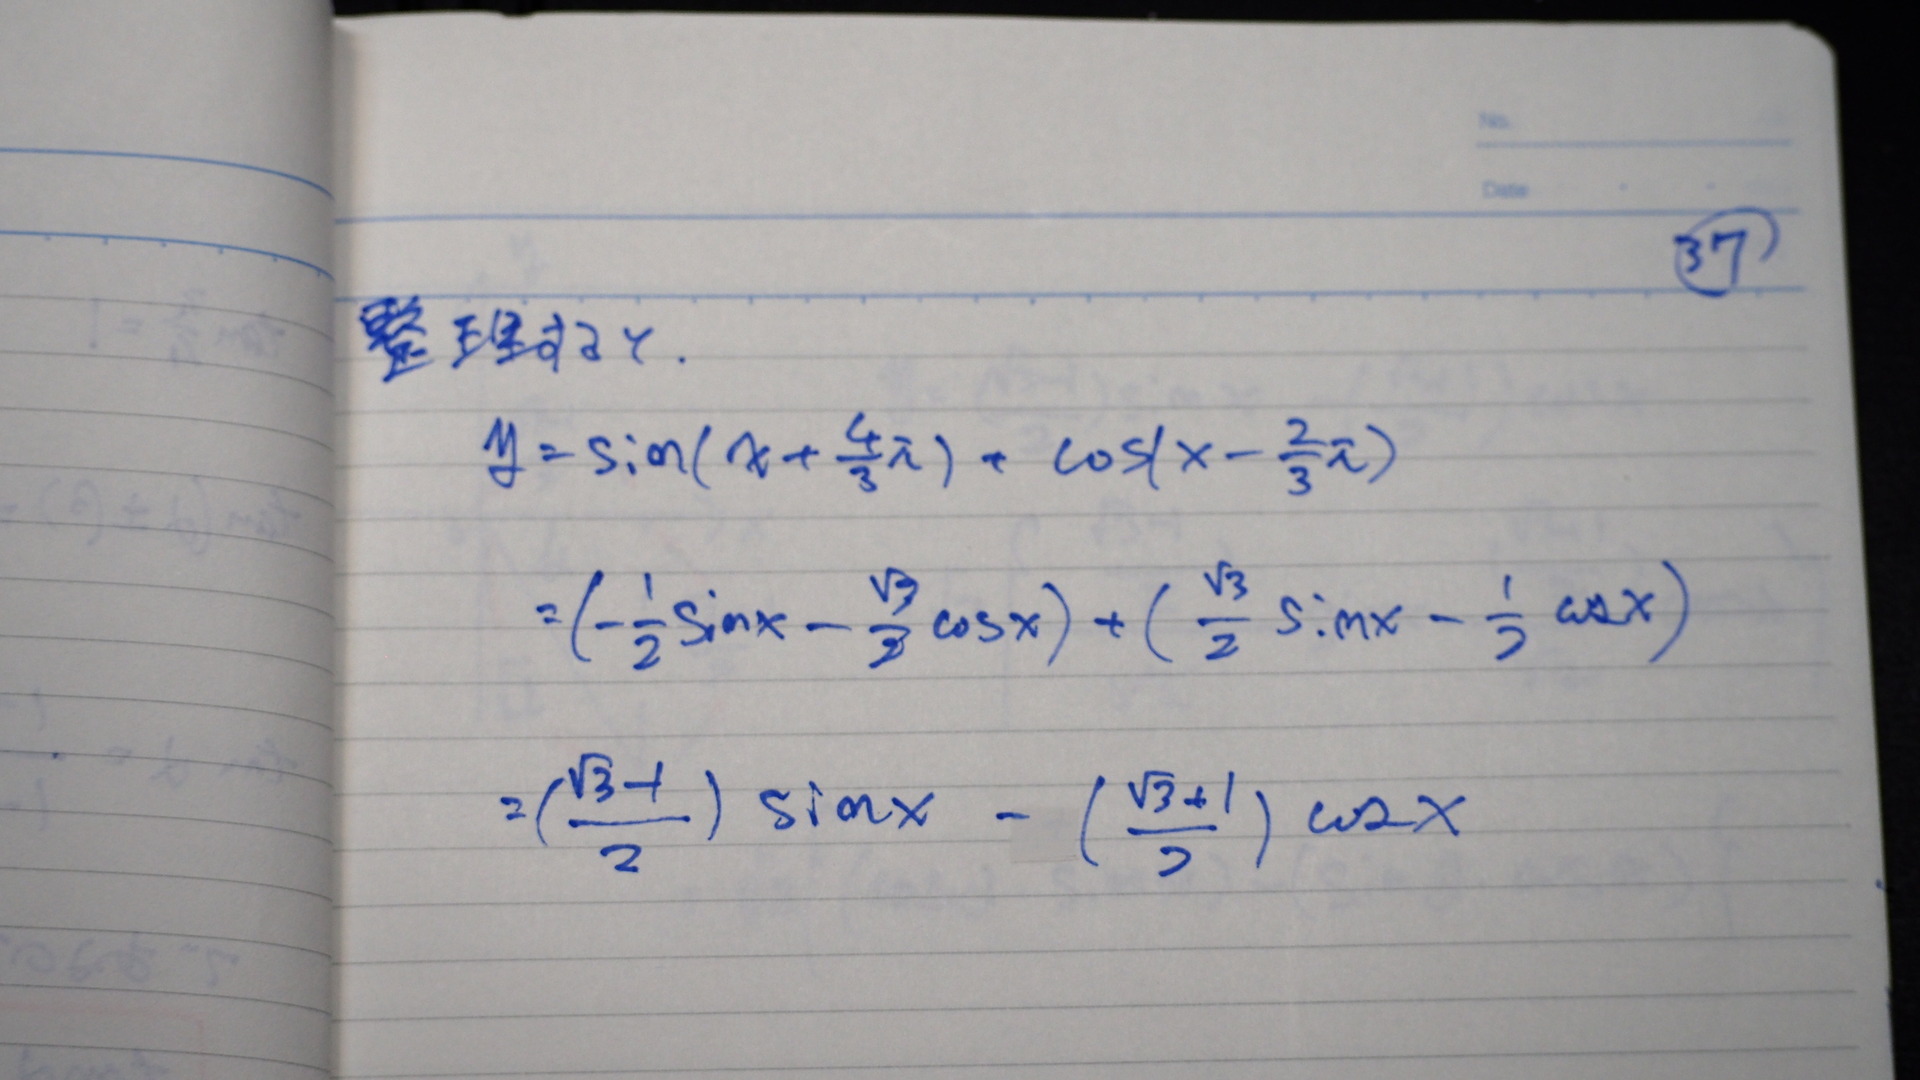 No.
Date
37
整理すると.
y = sin(x + 4/3 π) + cos(x − 2/3 π)
= (−1/2 sinx − √3/2 cosx) + (√3/2 sinx − 1/2 cosx)
= (√3−1/2) sinx − (√3+1/2) cosx